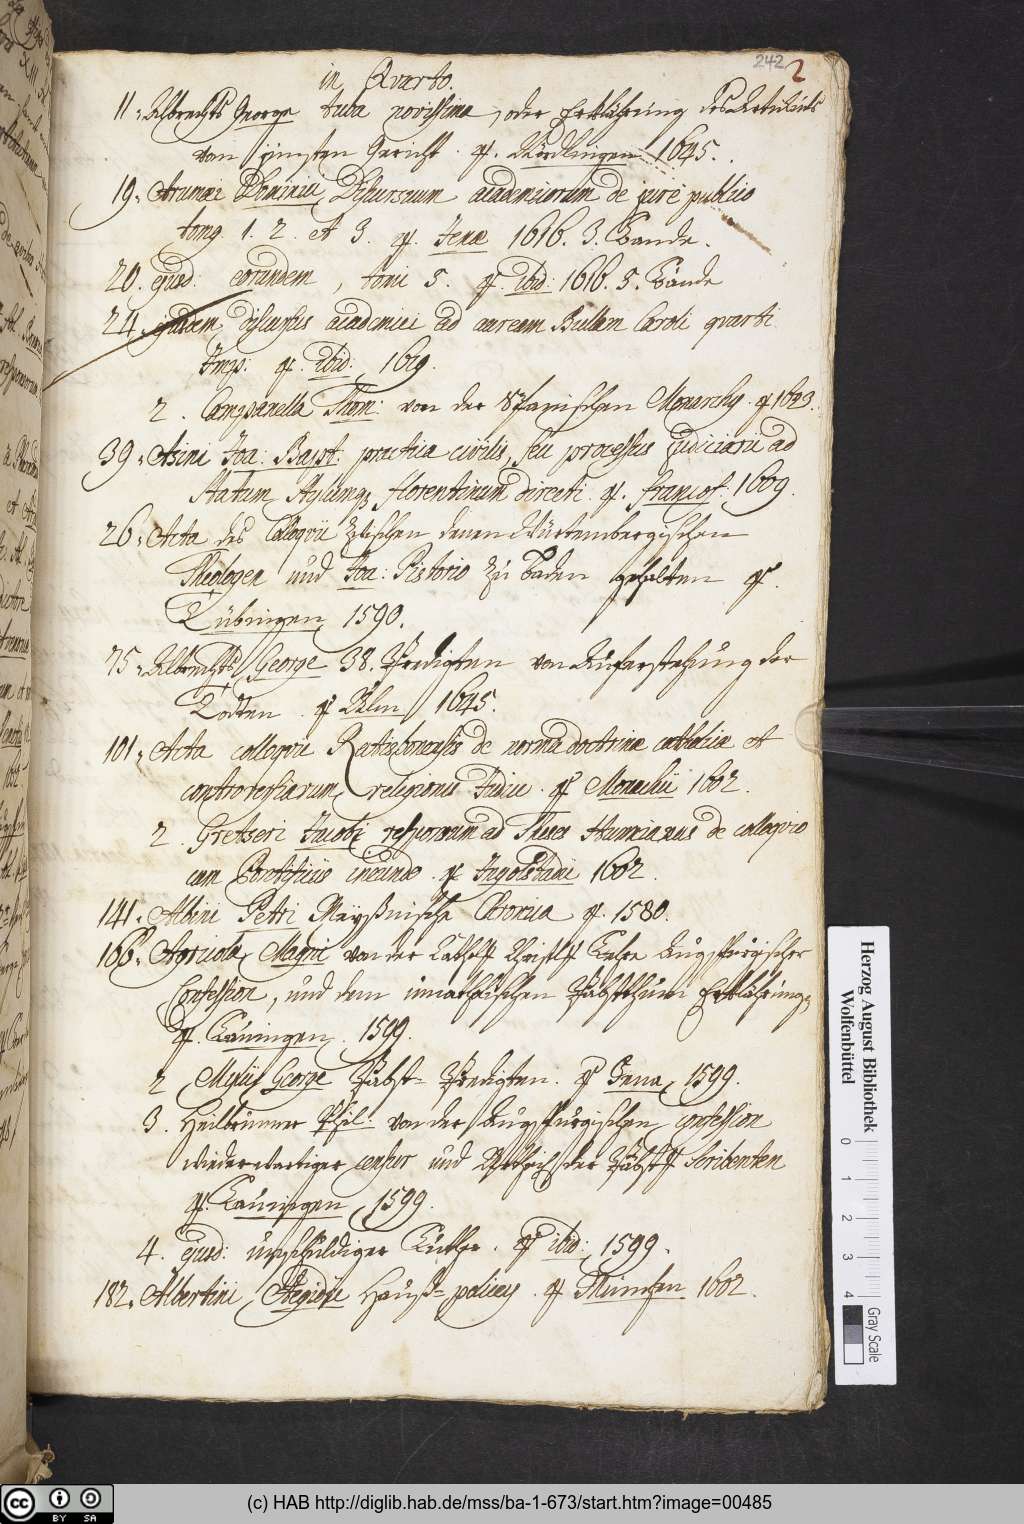 242 2
in Qvarto.
11. Albrechts George tuba novissima, oder Erklährung des Articuls
vom jüngsten Gericht. gf. Nördlingen 1645.
19. Arumaei Dominici Discursuum academicorum de jure publico
tomg 1. 2. et 3. gf. Jenae 1616. 3. Bande.
20. ejusd: eorundem, tomi 5. gf. ibid: 1616. 5. Bände
24. ejusdem discursus academici ad auream Bullam Caroli quarti
Imp: gf. ibid: 1619.
2. Campanella Thom: von der Spanischen Monarchy. gf 1623.
39. Asini Joa: Bapt: practica civilis, seu processus judiciarii ad
statum stylumq florentinum directi. gf. francof. 1609.
26. Acta des Colloqvii zwischen denen Würtembergischen
Theologen und Joa: Pistorio zu Baden gehalten gf.
Tübingen 1590.
75. Albrechts George 38. Predigten von Auferstehung der
Todten. gf Ulm 1645.
101. Acta colloqvii Ratisbonensis de norma doctrinae catholicae et
controversiarum religionis Judice. gf Monachii 1602.
2. Gretseri Jacobi responsum ad Theses Hunnianas de colloquio
cum Pontificiis ineundo. gf Ingolstadii 1602.
141. Albini Petri Meyßnische Chronica gf. 1580.
166. Agricola Magni von der Cathol: Christl: Lehre Augspurgischer
Confession, und dem Päbstthum Erklährung
gf. Lauingen. 1599.
2 Mylii George Pabst-Predigten. gf Jena 1599.
3. Heilbrunner Phil: von der Augspurgischen confession
wiederwertiger censur und Urtheil der Päbstl: Scribenten
gf. Lauingen 1599.
4. ejusd: unschuldiger Luther. gf ibid: 1599.
182. Albertini Aegidii Hauß-policey. gf München 1602.
Herzog August Bibliothek
Wolfenbüttel
0 1 2 3 4
Gray Scale
cc BY SA
(c) HAB http://diglib.hab.de/mss/ba-1-673/start.htm?image=00485